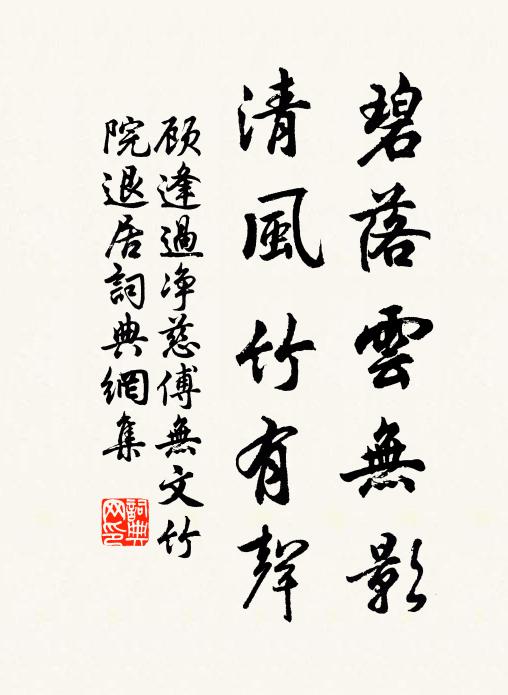 碧落雲無影
清風竹有聲
顾逢過净慈傅無文竹
院退居詞典網集
詞典网印